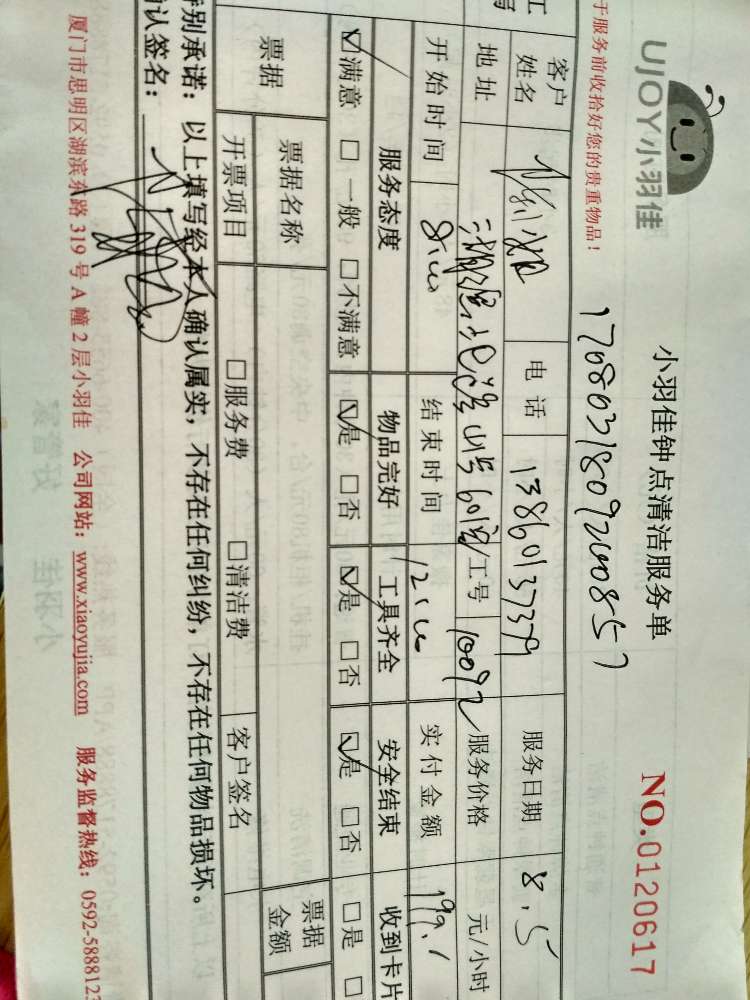 UJOY小羽佳
小羽佳钟点清洁服务单
NO.0120617
于服务前收拾好您的贵重物品!
客户姓名 电话 13860137379 服务日期 8.5
地址 工号 10092 服务价格 元/小时
开始时间 8:00 结束时间 12:00 实付金额 199.1
服务态度 物品完好 工具齐全 安全结束 收到卡片
☑满意 □一般 □不满意 ☑是 □否 ☑是 □否 ☑是 □否 □是 □
票据 票据名称 票据金额
开票项目 □服务费 □清洁费 客户签名
特别承诺:以上填写经本人确认属实,不存在任何纠纷,不存在任何物品损坏。
确认签名:
厦门市思明区湖滨东路 319 号 A 幢 2 层小羽佳 公司网站:www.xiaoyujia.com 服务监督热线:0592-5888123